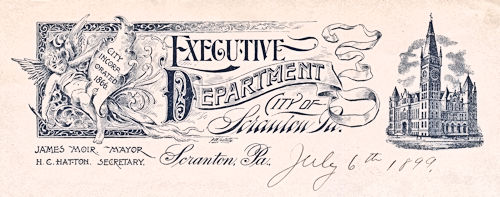 CITY
INCORP
ORATED
1866
EXECUTIVE
DEPARTMENT
CITY OF
Scranton Pa.
JAMES MOIR, MAYOR
H. C. HATTON. SECRETARY.
Scranton, Pa. July 6th 1899